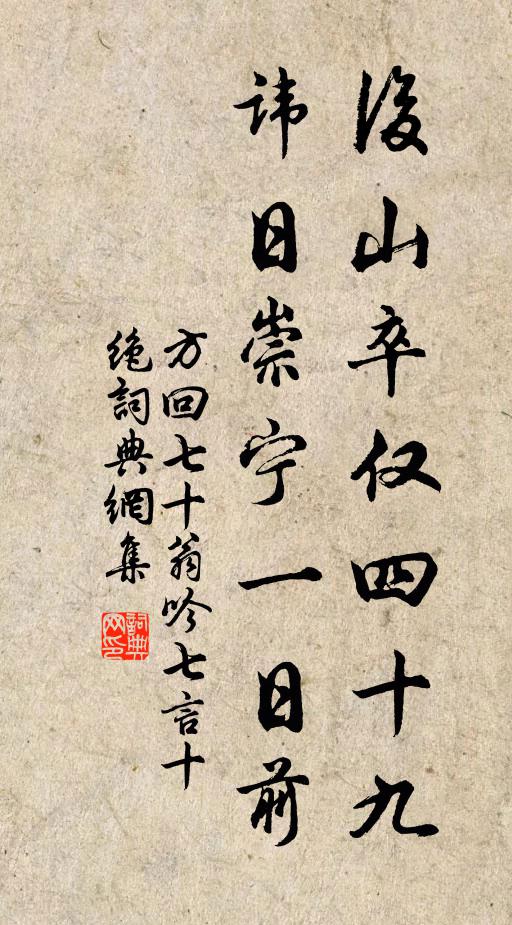 後山卒仅四十九
讳日崇宁一日前
方回七十翁吟七言十
绝詞典網集
詞典
网印